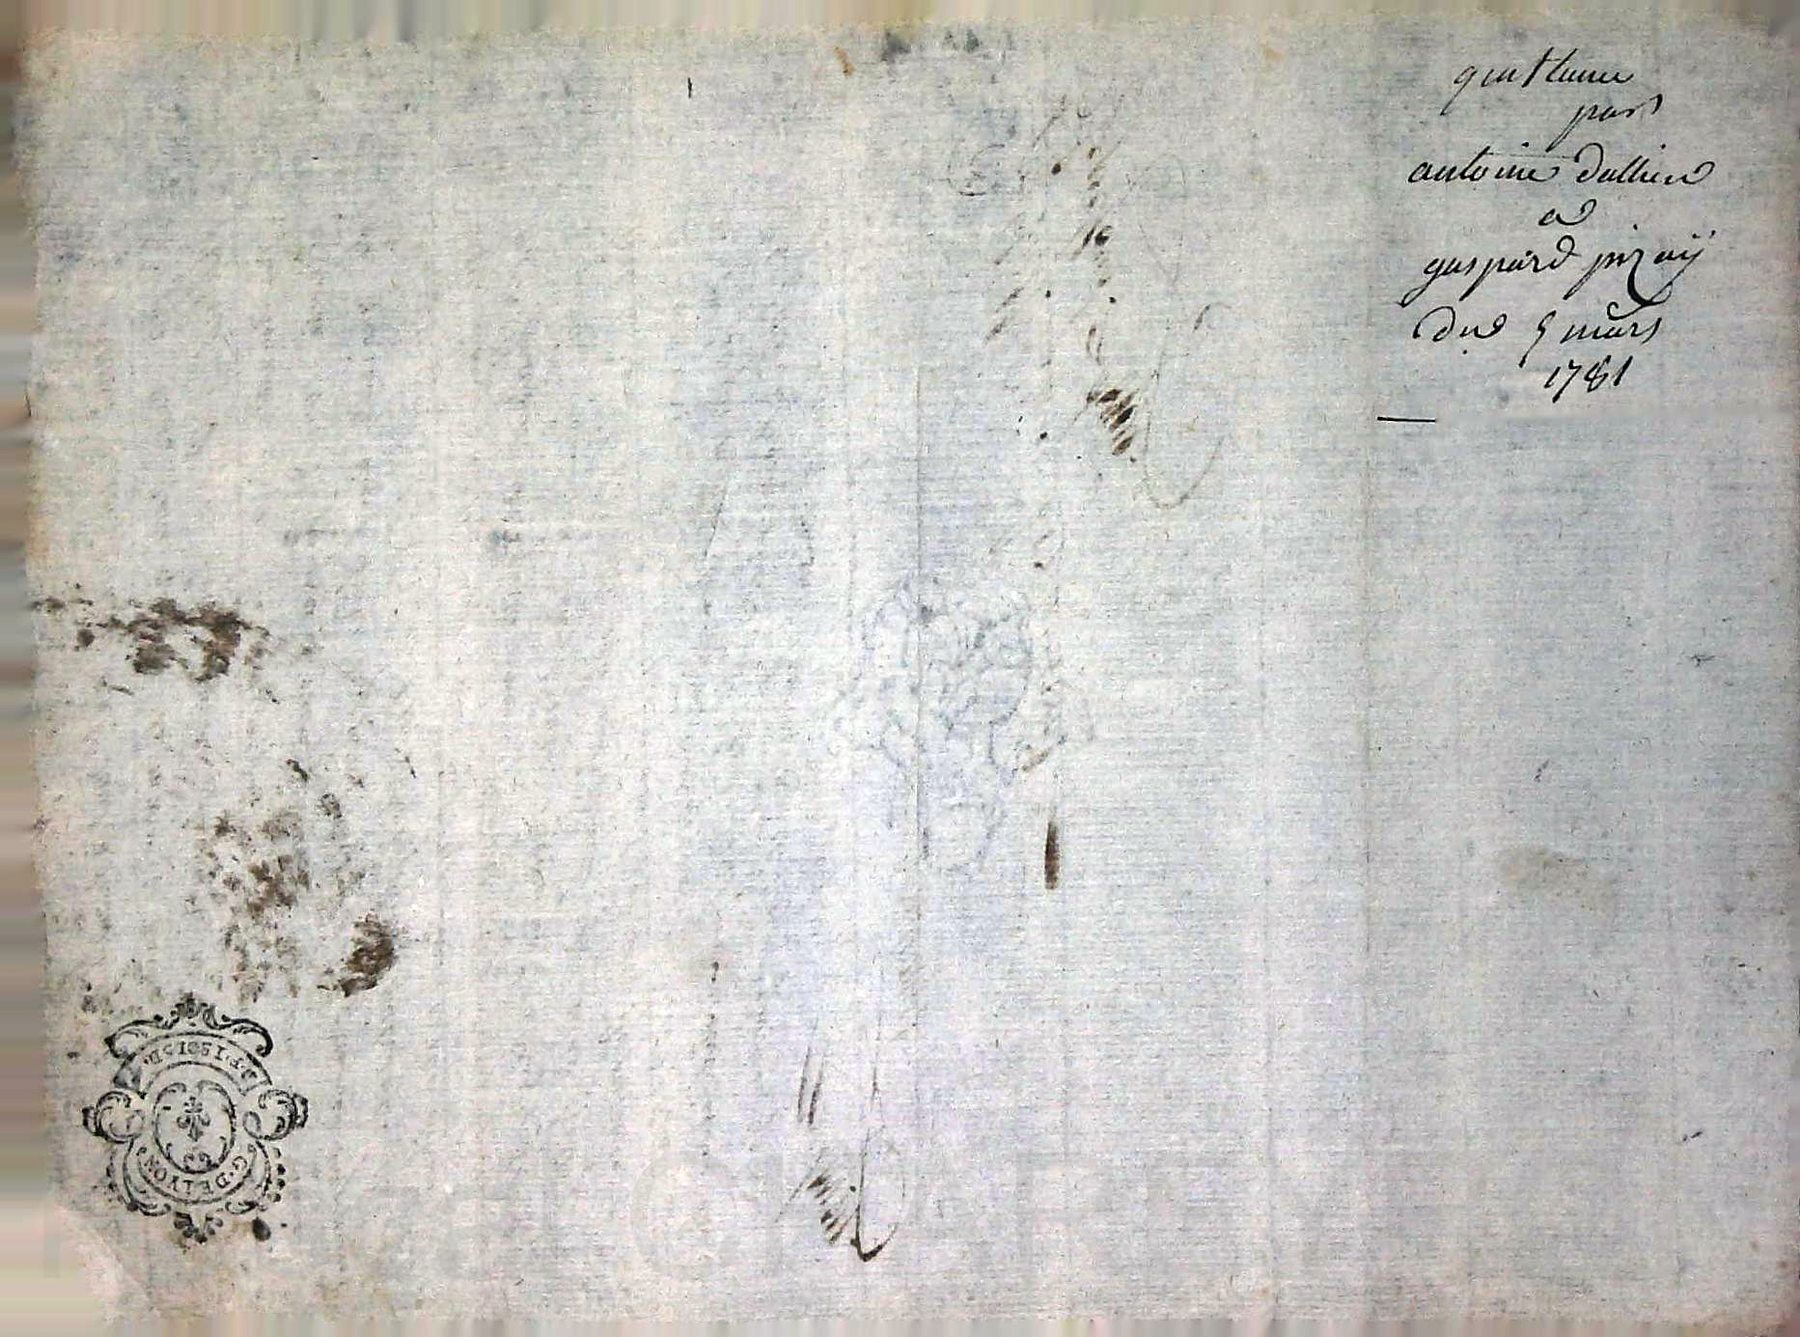 quittance
par
antoine dallier
a
gaspard pizaÿ
du 5 mars
1781
G. DE LYON